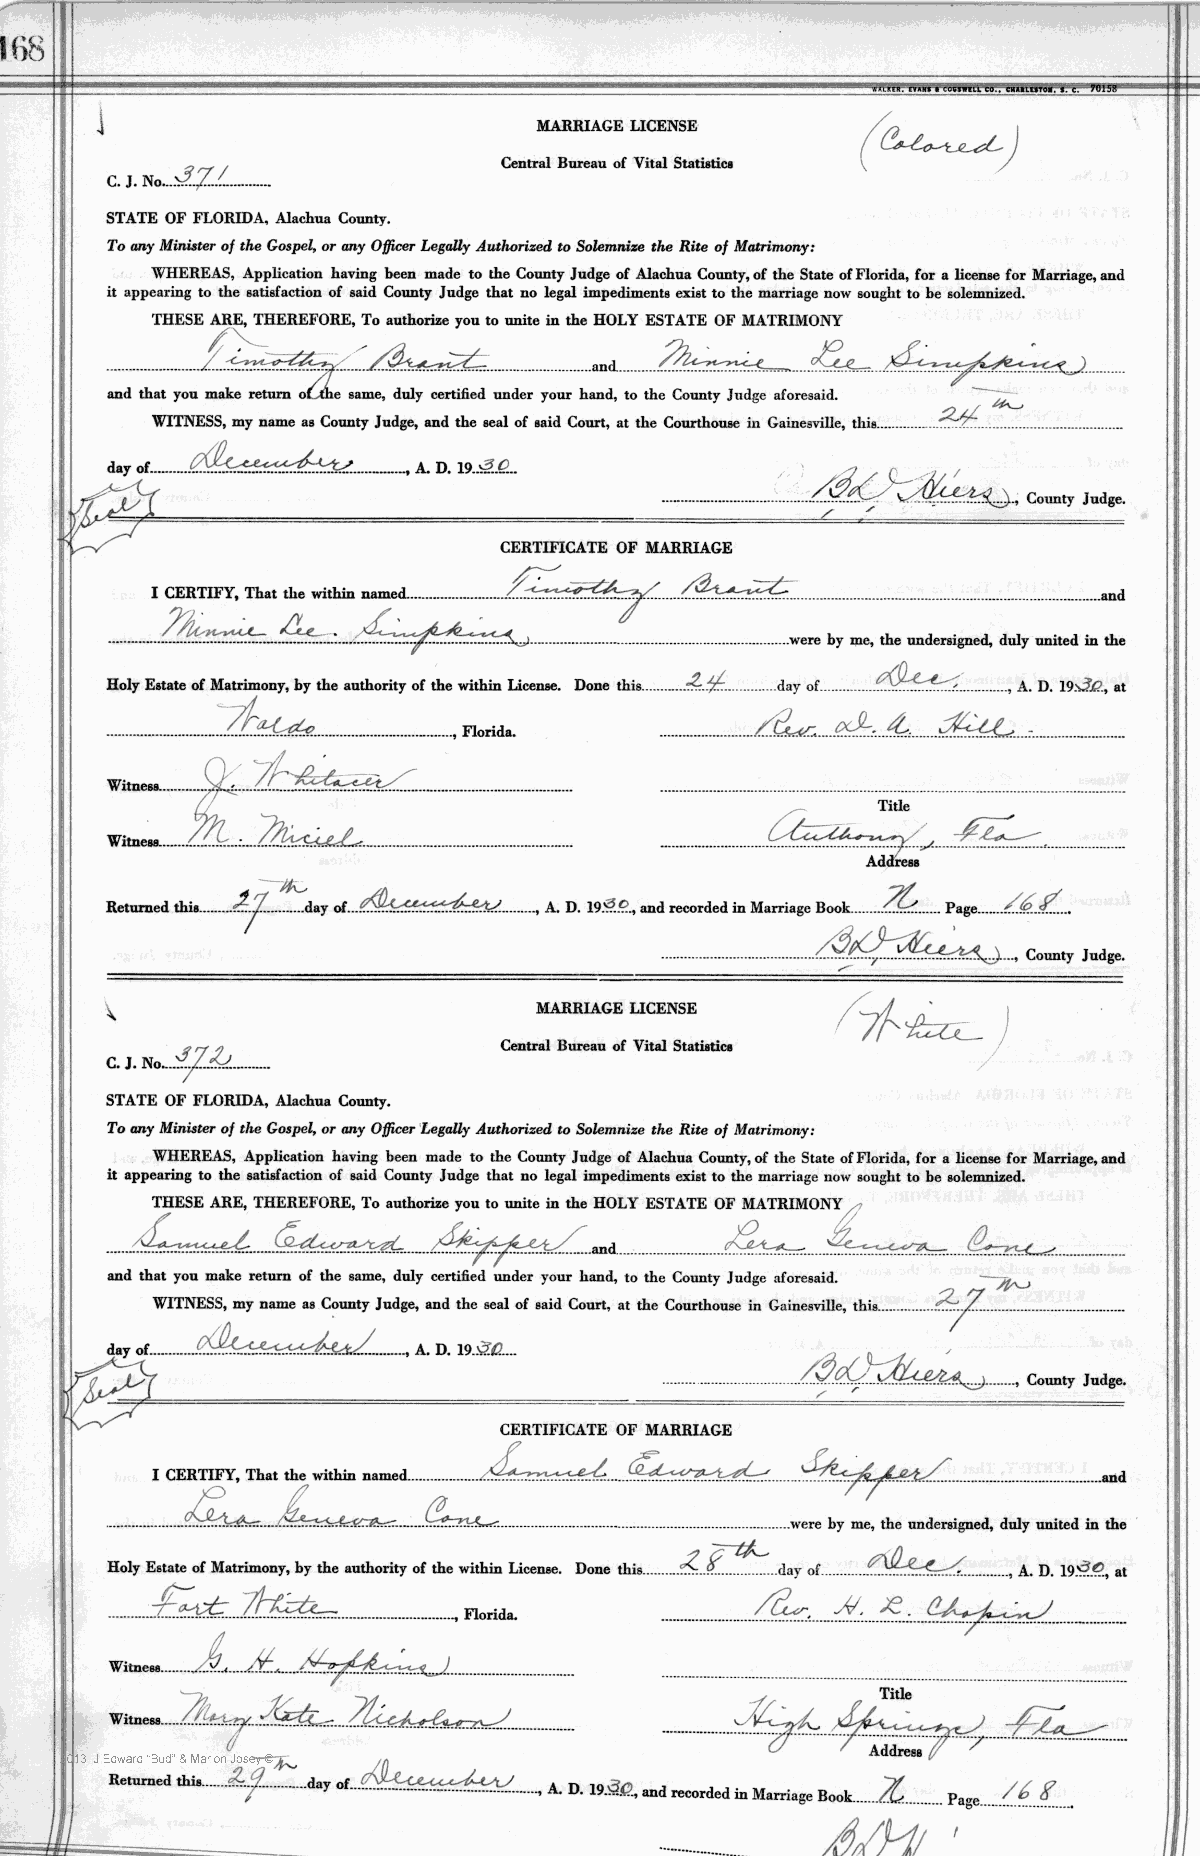 168
WALKER, EVANS & COGSWELL CO., CHARLESTON, S. C. 70158
MARRIAGE LICENSE
(Colored)
Central Bureau of Vital Statistics
C. J. No. 371
STATE OF FLORIDA, Alachua County.
To any Minister of the Gospel, or any Officer Legally Authorized to Solemnize the Rite of Matrimony:
WHEREAS, Application having been made to the County Judge of Alachua County, of the State of Florida, for a license for Marriage, and
it appearing to the satisfaction of said County Judge that no legal impediments exist to the marriage now sought to be solemnized.
THESE ARE, THEREFORE, To authorize you to unite in the HOLY ESTATE OF MATRIMONY
Timothy Brant and Minnie Lee Simpkins
and that you make return of the same, duly certified under your hand, to the County Judge aforesaid.
WITNESS, my name as County Judge, and the seal of said Court, at the Courthouse in Gainesville, this 24th
day of December, A. D. 1930
Seal
B D, Hiers, County Judge.
CERTIFICATE OF MARRIAGE
I CERTIFY, That the within named Timothy Brant and
Minnie Lee. Simpkins were by me, the undersigned, duly united in the
Holy Estate of Matrimony, by the authority of the within License. Done this 24 day of Dec., A. D. 1930, at
Waldo, Florida. Rev. D. A. Hill
Witness J. Whitacer
Title
Witness M. Miciel Anthony, Fla.
Address
Returned this 27th day of December, A. D. 1930, and recorded in Marriage Book N Page 168.
B D, Hiers, County Judge.
MARRIAGE LICENSE
(White)
Central Bureau of Vital Statistics
C. J. No. 372
STATE OF FLORIDA, Alachua County.
To any Minister of the Gospel, or any Officer Legally Authorized to Solemnize the Rite of Matrimony:
WHEREAS, Application having been made to the County Judge of Alachua County, of the State of Florida, for a license for Marriage, and
it appearing to the satisfaction of said County Judge that no legal impediments exist to the marriage now sought to be solemnized.
THESE ARE, THEREFORE, To authorize you to unite in the HOLY ESTATE OF MATRIMONY
Samuel Edward Skipper and Lera Geneva Cone
and that you make return of the same, duly certified under your hand, to the County Judge aforesaid.
WITNESS, my name as County Judge, and the seal of said Court, at the Courthouse in Gainesville, this 27th
day of December, A. D. 1930
Seal
B D, Hiers, County Judge.
CERTIFICATE OF MARRIAGE
I CERTIFY, That the within named Samuel Edward Skipper and
Lera Geneva Cone were by me, the undersigned, duly united in the
Holy Estate of Matrimony, by the authority of the within License. Done this 28th day of Dec., A. D. 1930, at
Fort White, Florida. Rev. H. L. Chapin
Witness G. H. Hopkins
Title
Witness Mary Kate Nicholson High Springs, Fla
Address
013 J Edward "Bud" & Marion Josey ©
Returned this 29th day of December, A. D. 1930, and recorded in Marriage Book N Page 168.
B D H